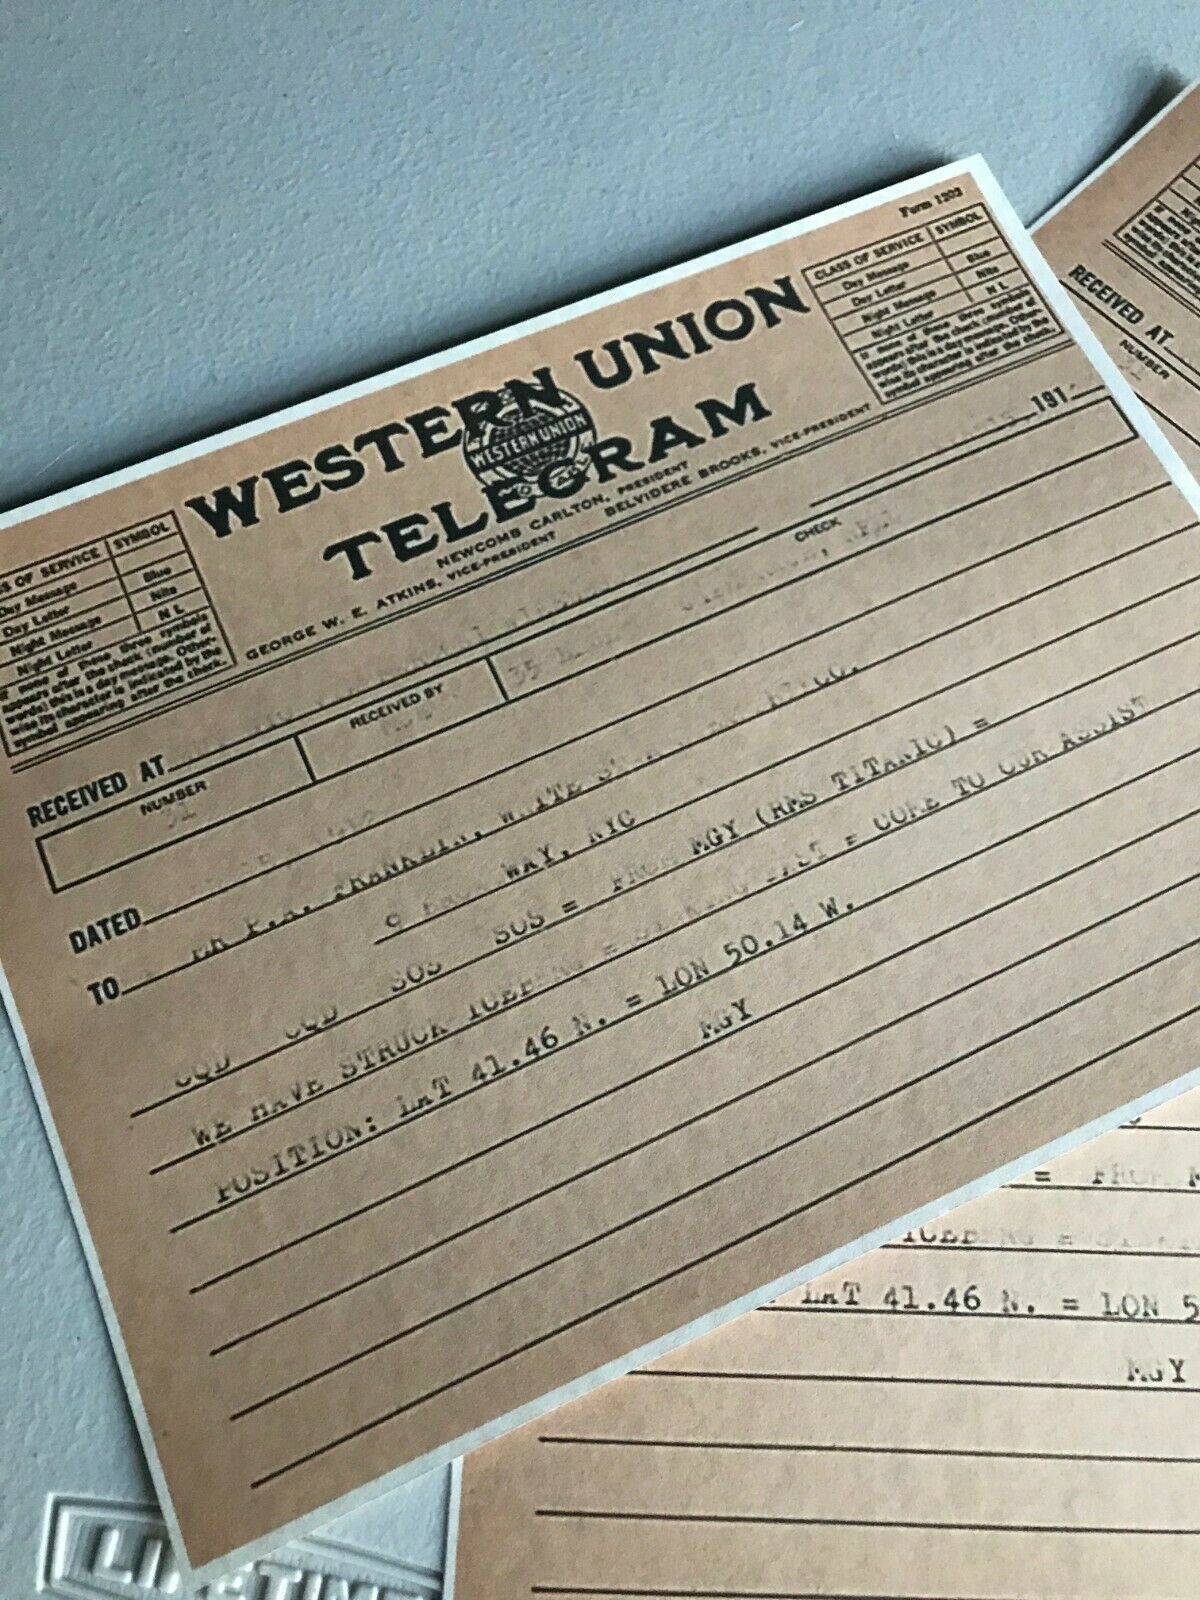 Form 1202
CLASS OF SERVICE SYMBOL
Day Message
Day Letter Blue
Night Message Nite
Night Letter N L
If none of these three symbols
appears after the check (number of
words) this is a day message. Other-
wise its character is indicated by the
symbol appearing after the check.
WESTERN UNION
WESTERN UNION
TELEGRAM
NEWCOMB CARLTON, PRESIDENT
GEORGE W. E. ATKINS, VICE-PRESIDENT BELVIDERE BROOKS, VICE-PRESIDENT
CLASS OF SERVICE SYMBOL
Day Message
Day Letter Blue
Night Message Nite
Night Letter N L
If none of these three symbols
appears after the check (number of
words) this is a day message. Other-
wise its character is indicated by the
symbol appearing after the check.
RECEIVED AT 191
NUMBER RECEIVED BY CHECK
31 35
DATED
TO MR P.A. FRANKLIN, WHITE
9 WAY, NYC
CQD CQD SOS SOS = FROM MGY (RMS TITANIC) =
WE HAVE STRUCK ICEBERG = SINKING FAST = COME TO OUR ASSIST
POSITION: LAT 41.46 N. = LON 50.14 W.
MGY
RECEIVED AT
NUMBER
= FROM
ICEBERG =
LAT 41.46 N. = LON 5
MGY
LIFETIME